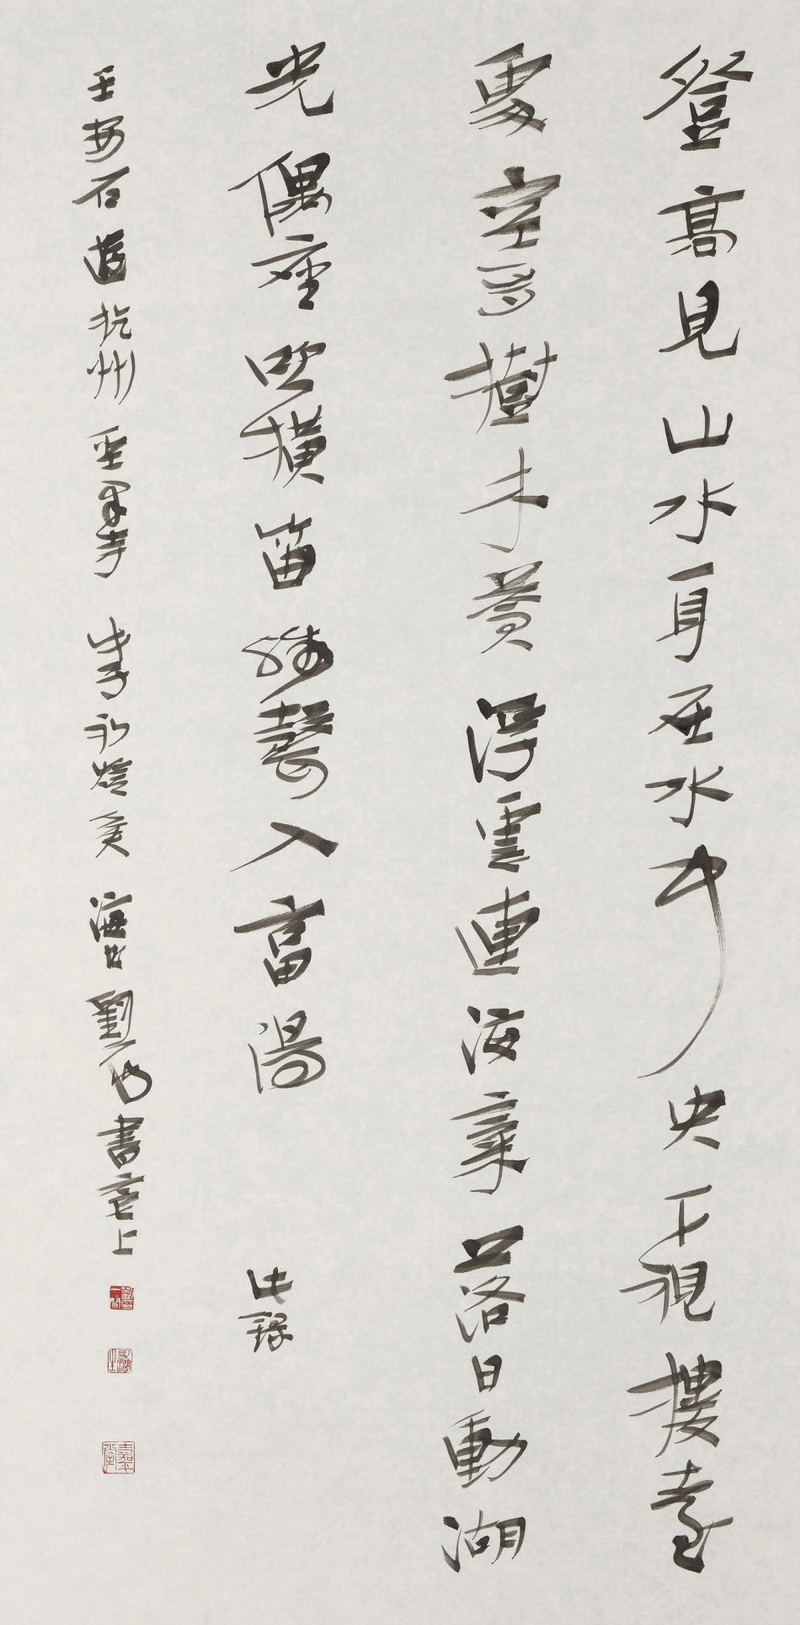 登高見山水身在水中央下視樓臺
處空多樹木蒼浮雲連海氣落日動湖
光偶座吹橫笛殘聲入富陽 此錄
王安石遊杭州聖果寺 海上劉一聞書